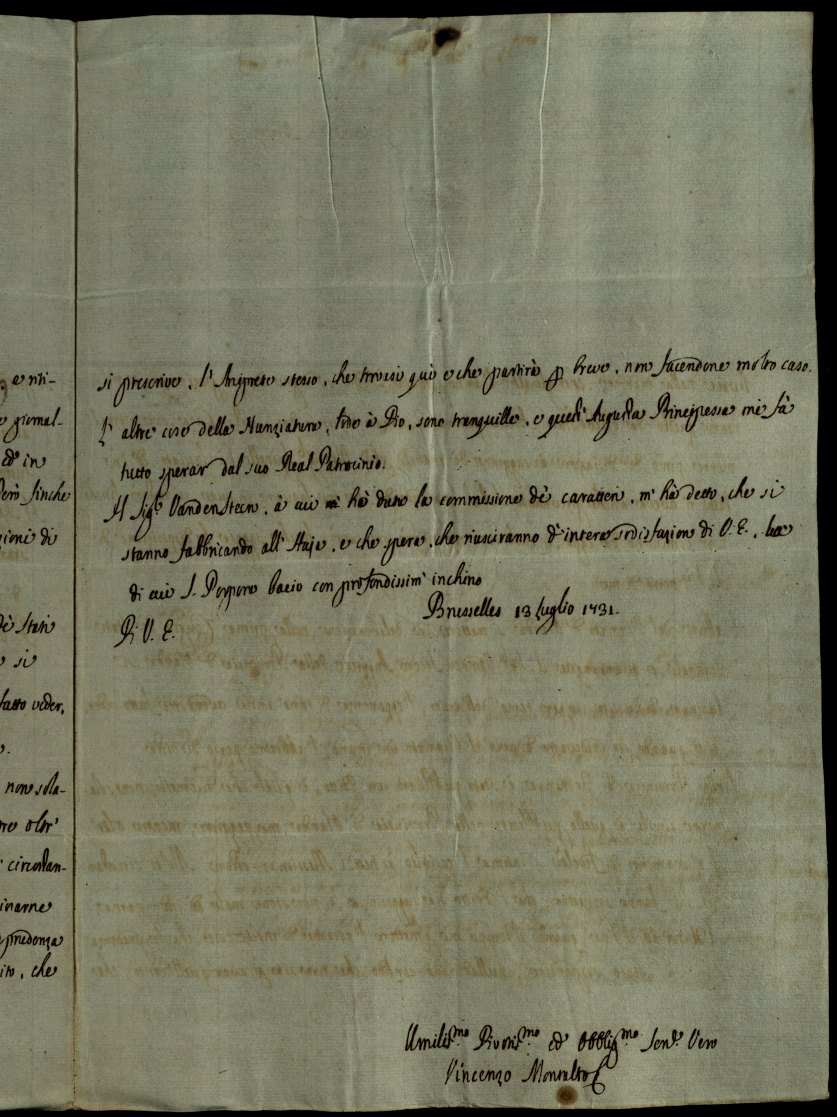 e riti-
giornal-
ed in
però finche
gioni di
dè Stati
si
fatto veder,
non sola-
circostan-
prudenza
che
si prescrive, l'Arciprete stesso, che trovasi quì e che partirà p breve, non facendone molto caso.
L'altre cose della Nunziatura, lode à Dio, sono tranquille, e quest'Augusta Principessa mi fà
tutto sperar dal suo Real Patrocinio.
Il Sig.r VandenSteen, à cui hà dato la commissione dè caratteri, m'hà detto, che si
stanno fabbricando all'Haja, e che spera, che riusciranno d'intera sodisfazion di V. E.,
di cui S. Porpora bacio con profondissim' inchino
Brusselles 13 Luglio 1731.
Di V. E.
Umiliss.mo Divotiss.mo ed Obblig.mo Serv.e Vero
Vincenzo Montalto